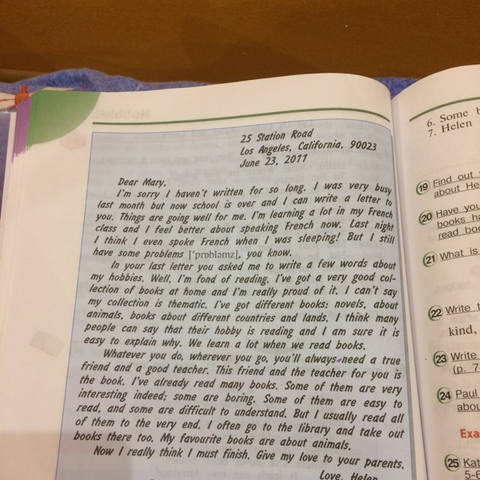 Hobbies
25 Station Road
Los Angeles, California, 90023
June 23, 2011
Dear Mary,
I'm sorry I haven't written for so long. I was very busy
last month but now school is over and I can write a letter to
you. Things are going well for me. I'm learning a lot in my French
class and I feel better about speaking French now. Last night
I think I even spoke French when I was sleeping! But I still
have some problems ['prɒbləmz], you know.
In your last letter you asked me to write a few words about
my hobbies. Well, I'm fond of reading. I've got a very good col-
lection of books at home and I'm really proud of it. I can't say
my collection is thematic. I've got different books: novels, about
animals, books about different countries and lands. I think many
people can say that their hobby is reading and I am sure it is
easy to explain why. We learn a lot when we read books.
Whatever you do, wherever you go, you'll always need a true
friend and a good teacher. This friend and the teacher for you is
the book. I've already read many books. Some of them are very
interesting indeed; some are boring. Some of them are easy to
read, and some are difficult to understand. But I usually read all
of them to the very end. I often go to the library and take out
books there too. My favourite books are about animals.
Now I really think I must finish. Give my love to your parents.
Love, Helen
6. Some
7. Helen
19 Find out
about He
20 Have you
books ha
read boo
21 What is
22 Write t
kind,
23 Write
(p. 7
24 Paul
abou
Exa
25 Kat
5-6